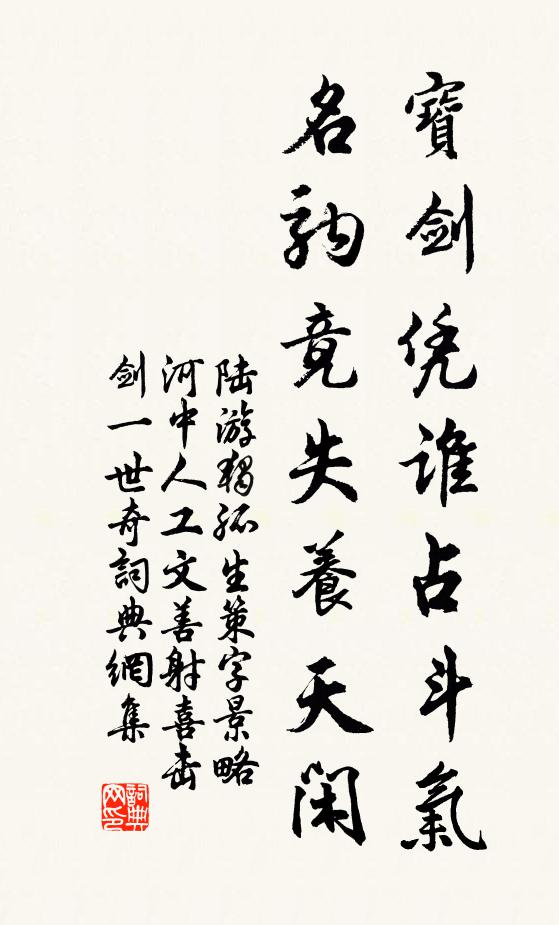 寶剑凭誰占斗氣
名駒竟失養天閑
陆游獨孤生策字景略
河中人工文善射喜击
剑一世奇詞典網集
詞典网印